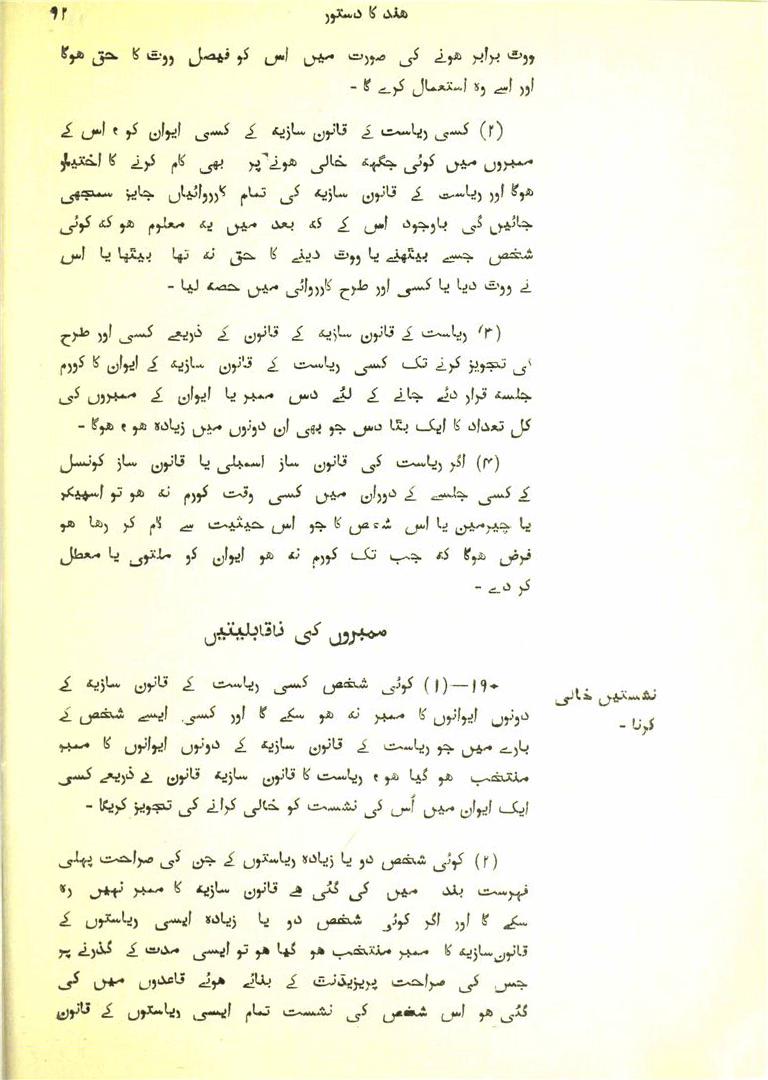 هند کا دستور ۹۲
ووٹ برابر هونے کی صورت میں اس کو فیصل ووٹ کا حق هوگا
اور اسے وہ استعمال کرے گا -
(۲) کسی ریاست کے قانون سازیہ کے کسی ایوان کو ، اس کے
ممبروں میں کوئی جگہہ خالی هونے پر بھی کام کرنے کا اختیار
هوگا اور ریاست کے قانون سازیہ کی تمام کارروائیاں جایز سمجھی
جائیں گی باوجود اس کے کہ بعد میں یہ معلوم هو کہ کوئی
شخص جسے بیٹھنے یا ووٹ دینے کا حق نہ تھا بیٹھا یا اس
نے ووٹ دیا یا کسی اور طرح کارروائی میں حصہ لیا -
(۳) ریاست کے قانون سازیہ کے قانون کے ذریعے کسی اور طرح
کی تجویز کرنے تک کسی ریاست کے قانون سازیہ کے ایوان کا کورم
جلسہ قرار دئے جانے کے لئے دس ممبر یا ایوان کے ممبروں کی
کل تعداد کا ایک بٹا دس جو بھی ان دونوں میں زیادہ هو ، هوگا -
(۴) اگر ریاست کی قانون ساز اسمبلی یا قانون ساز کونسل
کے کسی جلسے کے دوران میں کسی وقت کورم نہ هو تو اسپیکر
یا چیرمین یا اس شخص کا جو اس حیثیت سے کام کر رها هو
فرض هوگا کہ جب تک کورم نہ هو ایوان کو ملتوی یا معطل
کر دے -
ممبروں کی ناقابلیتیں
نشستیں خالی
کرنا -
۱۹۰—(۱) کوئی شخص کسی ریاست کے قانون سازیہ کے
دونوں ایوانوں کا ممبر نہ هو سکے گا اور کسی ایسے شخص کے
بارے میں جو ریاست کے قانون سازیہ کے دونوں ایوانوں کا ممبر
منتخب هو گیا هو ، ریاست کا قانون سازیہ قانون کے ذریعے کسی
ایک ایوان میں اُس کی نشست کو خالی کرانے کی تجویز کریگا -
(۲) کوئی شخص دو یا زیادہ ریاستوں کے جن کی صراحت پہلی
فہرست بند میں کی گئی هے قانون سازیہ کا ممبر نہیں رہ
سکے گا اور اگر کوئی شخص دو یا زیادہ ایسی ریاستوں کے
قانون سازیہ کا ممبر منتخب هو گیا هو تو ایسی مدت کے گذرنے پر
جس کی صراحت پریزیڈنٹ کے بنائے هوئے قاعدوں میں کی
گئی هو اس شخص کی نشست تمام ایسی ریاستوں کے قانون